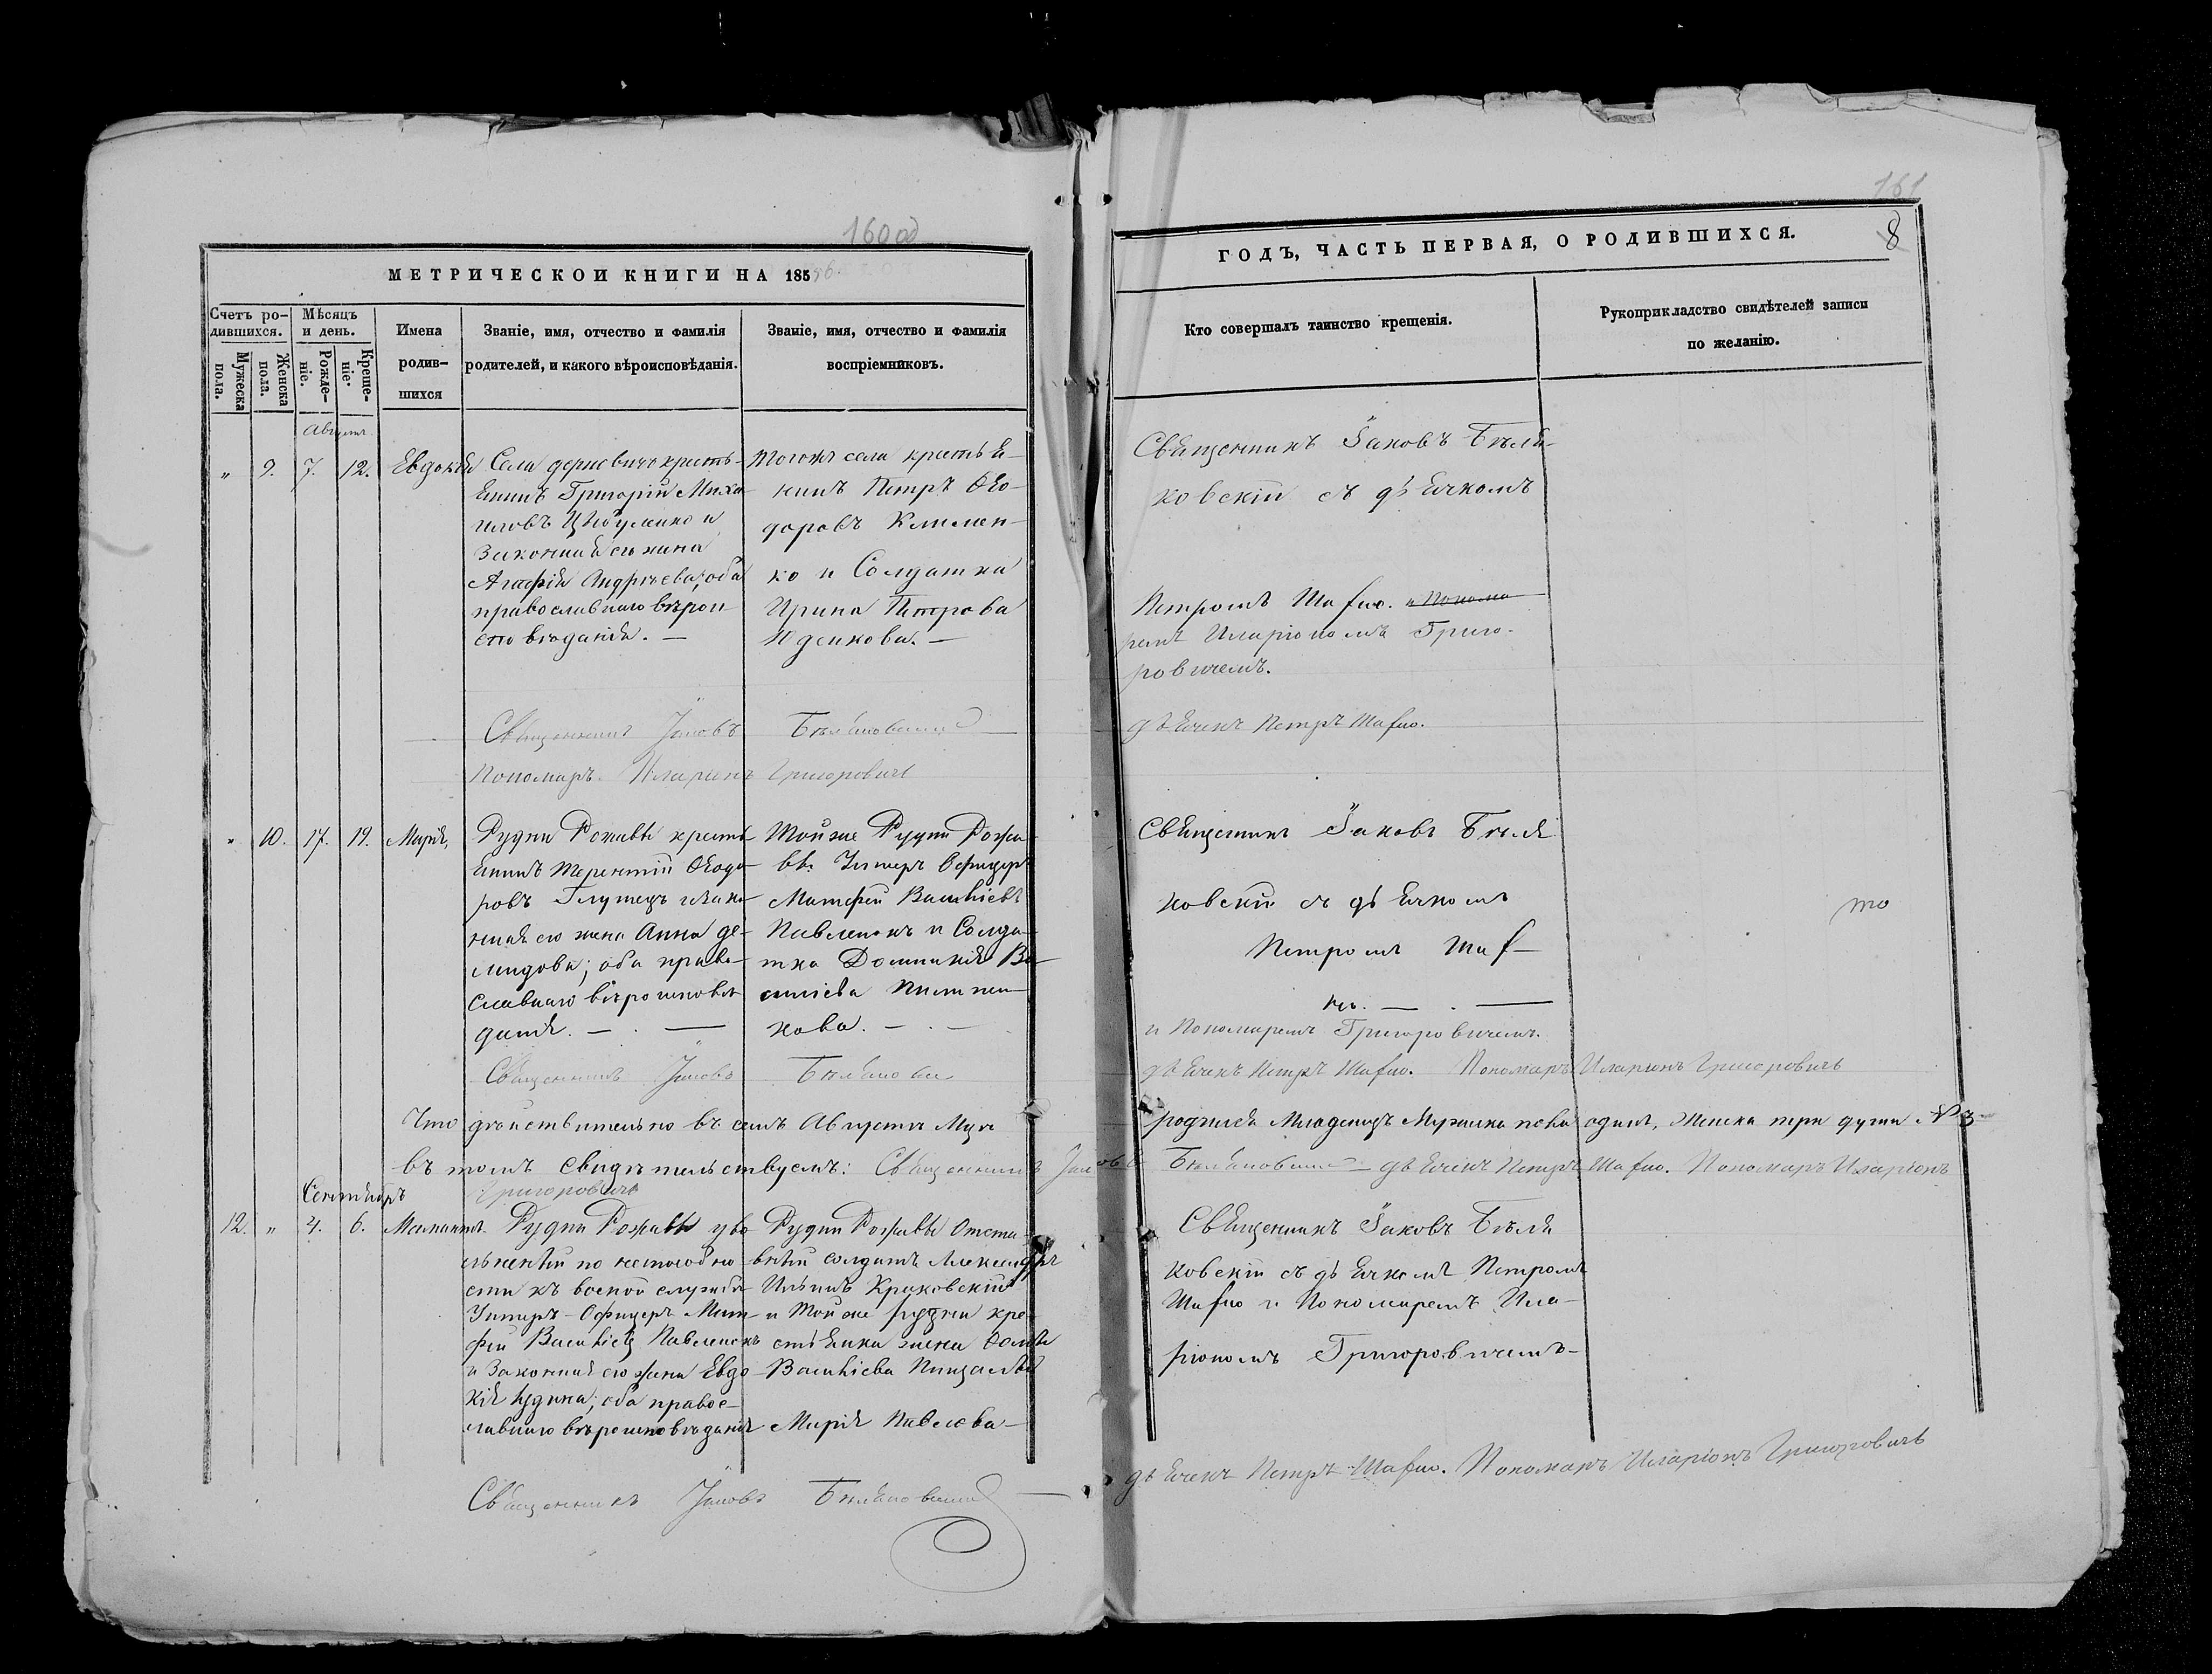 160 об
МЕТРИЧЕСКОЙ КНИГИ НА 1856
Счетъ ро-
дившихся.
Мужеска
пола.
Женска
пола.
Мѣсяцъ
и день.
Рожде-
ніе.
Креще-
ніе.
Имена
родив-
шихся
Званіе, имя, отчество и фамилія
родителей, и какого вѣроисповѣданія.
Званіе, имя, отчество и фамилія
воспріемниковъ.
Августъ
„ 9. 7. 12. Евдокія
Села дерновичъ кресть-
янинъ Григорій Миха
иловъ Цыбулько и
Законная его жена
Агафія Андрѣева; оба
православнаго вѣрои
сповѣданія. —
Тогожъ села крестья-
нинъ Петръ Ѳео-
доровъ Клименъ-
ко и Солдатка
Ирина Петрова
Юденкова. —
Священникъ Іаковъ Бѣляновскій
Пономарь Иларіонъ Григоровичъ
„ 10. 17. 19. Марія,
Рудни Рожавы кресть
янинъ Терентій Ѳеодо
ровъ и закон
ная его жена Анна де-
мидова; оба право-
славнаго вѣроисповѣ
данія. — . —
Той же Рудни Рожа
вы Унтеръ Офицеръ
Матфій Василіевъ
Павленокъ и Солда
тка Домникія Ва
силіева
кова. — . —
Священникъ Іаковъ Бѣляновскій
Что дѣйствительно въ семъ Августѣ Мцѣ
въ томъ свидѣтельствуемъ: Священникъ Іаковъ
Григоровичъ
Сентябрь
12. „ 4. 6.
Рудни Рожавы уво
льненный по неспособно
сти къ военой службѣ
Унтеръ-Офицеръ Мат
фій Василіевъ Павленокъ
и Законная его жена Евдо
кія Іудина; оба правос-
лавнаго вѣроисповѣданія
Рудни Рожавы Отста
вный солдатъ Александръ
Ильинъ Краковскій
и Той же рудни кре
стьянка жена Ѳомы
Василіева
Марія Павлова —
Священникъ Іаковъ Бѣляновскій
161
ГОДЪ, ЧАСТЬ ПЕРВАЯ, О РОДИВШИХСЯ.
8
Кто совершалъ таинство крещенія.
Рукоприкладство свидѣтелей записи
по желанію.
Священникъ Іаковъ Бѣля-
новскій съ дьячкомъ
Петромъ Шафло. и Понома
ремъ Иларіономъ Григо-
ровичемъ.
дьячекъ Петръ Шафло.
Священникъ Іаковъ Бѣля
новскій съ дьячкомъ
то
Петромъ Шаф-
ло. — . —
и Пономаремъ Григоровичемъ.
дьячекъ Петръ Шафло. Пономарь Иларіонъ Григоровичъ
родился Младенецъ Мужеска пола одинъ, Женска три души № 3
Бѣляновскій — дьячекъ Петръ Шафло. Пономарь Иларіонъ
Священникъ Іаковъ Бѣля
новскій съ дьячкомъ Петромъ
Шафло и Пономаремъ Ила-
ріономъ Григоровичемъ-
дьячекъ Петръ Шафло. Пономарь Иларіонъ Григоровичъ